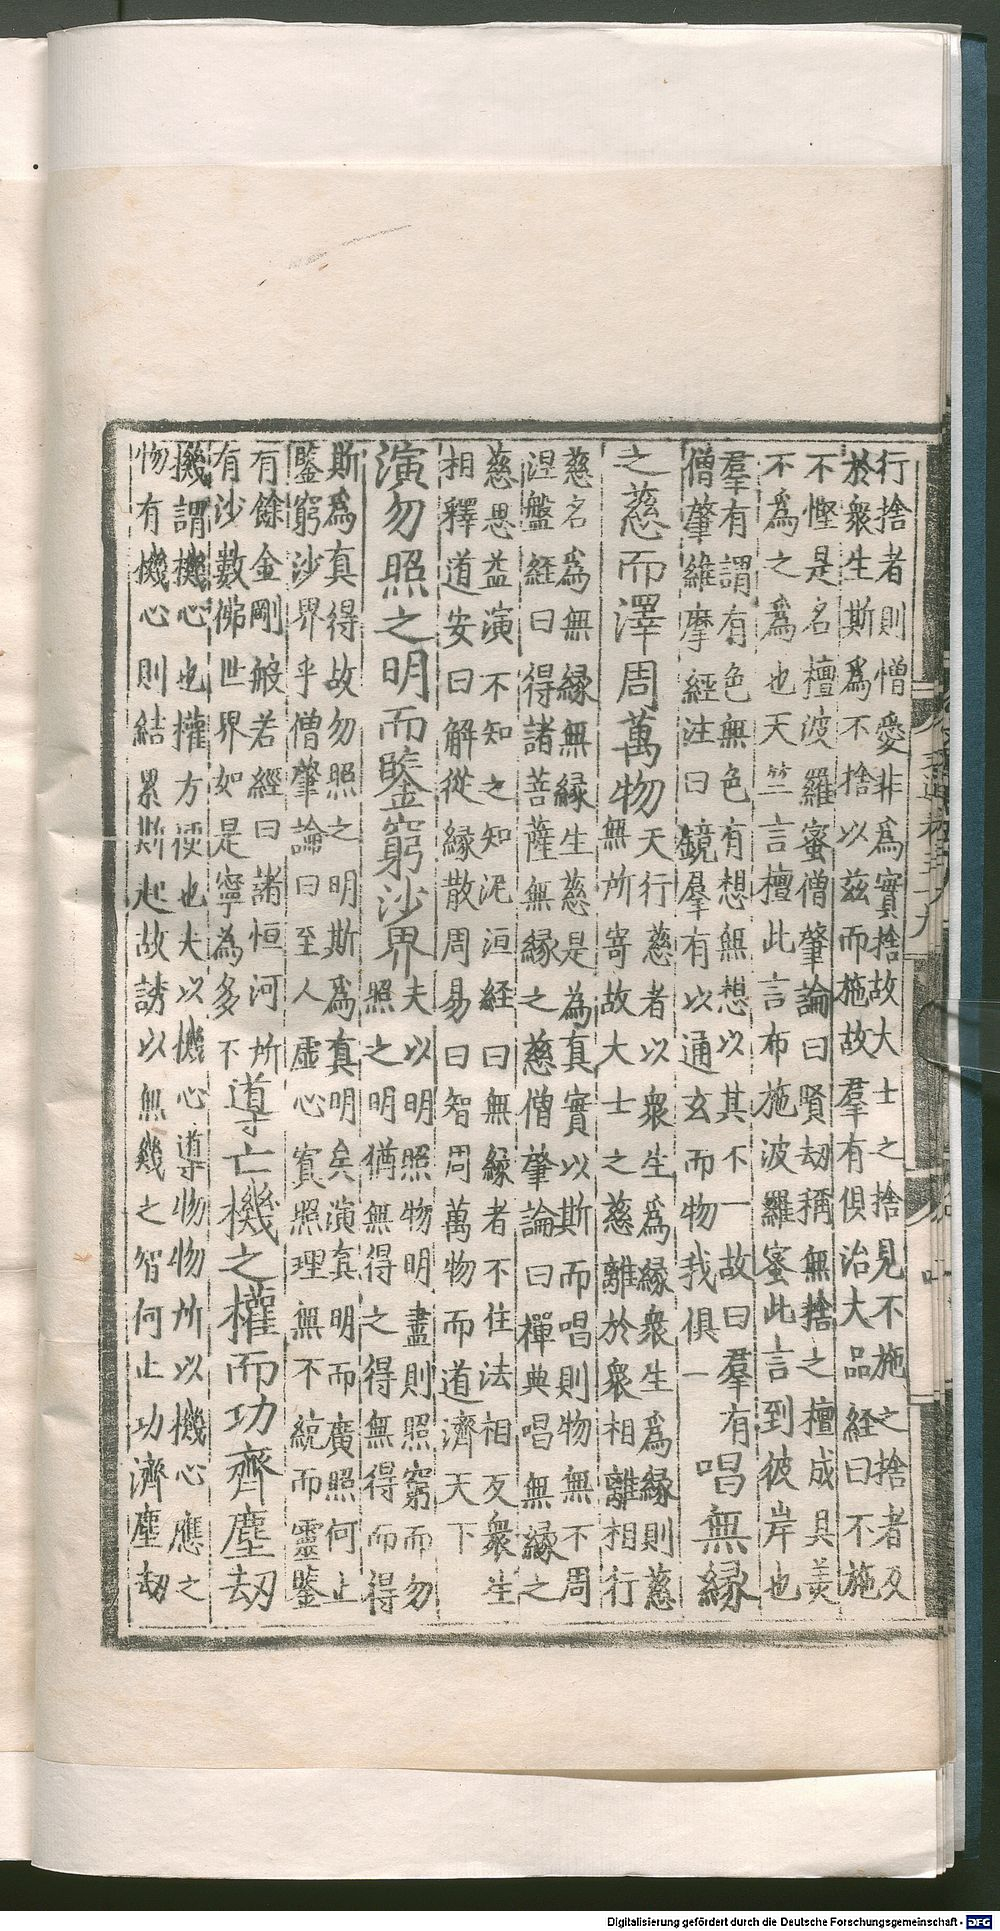 行捨者則憎愛非為實捨故大士之捨見不施之捨者及
於衆生斯爲不捨以兹而施故羣有俱治大品経曰不施
不慳是名檀波羅蜜僧肇論曰賢劫稱無捨之檀成具美
不爲之爲也天竺言檀此言布施波羅蜜此言到彼岸也
羣有謂有色無色有想無想以其不一故曰羣有
僧肇維摩經注曰鏡羣有以通玄而物我俱一
唱無緣
之慈而澤周萬物
天行慈者以衆生爲緣衆生爲緣則慈
無所寄故大士之慈離於衆相離相行
慈名爲無緣無緣生慈是為真實以斯而唱則物無不周
涅盤経曰得諸菩薩無緣之慈僧肇論曰禪典唱無緣之
慈思益演不知之知泥洹経曰無緣者不住法相及衆生
相釋道安曰解從緣散周易曰智周萬物而道濟天下
演勿照之明而鑒窮沙界
夫以明照物明盡則照窮而勿
照之明猶無得之得無得而得
斯爲真得故勿照之明斯爲真明矣演真明而廣照何止
鑒窮沙界乎僧肇論曰至人虛心實照理無不統而靈鑒
有餘金剛般若經曰諸恒河所
有沙數佛世界如是寧為多不
導亡機之權而功齊塵劫
機謂機心也權方便也夫以機心導物物所以機心應之
物有機心則結累斯起故誘以無幾之智何止功濟塵劫
Digitalisierung gefördert durch die Deutsche Forschungsgemeinschaft - DFG